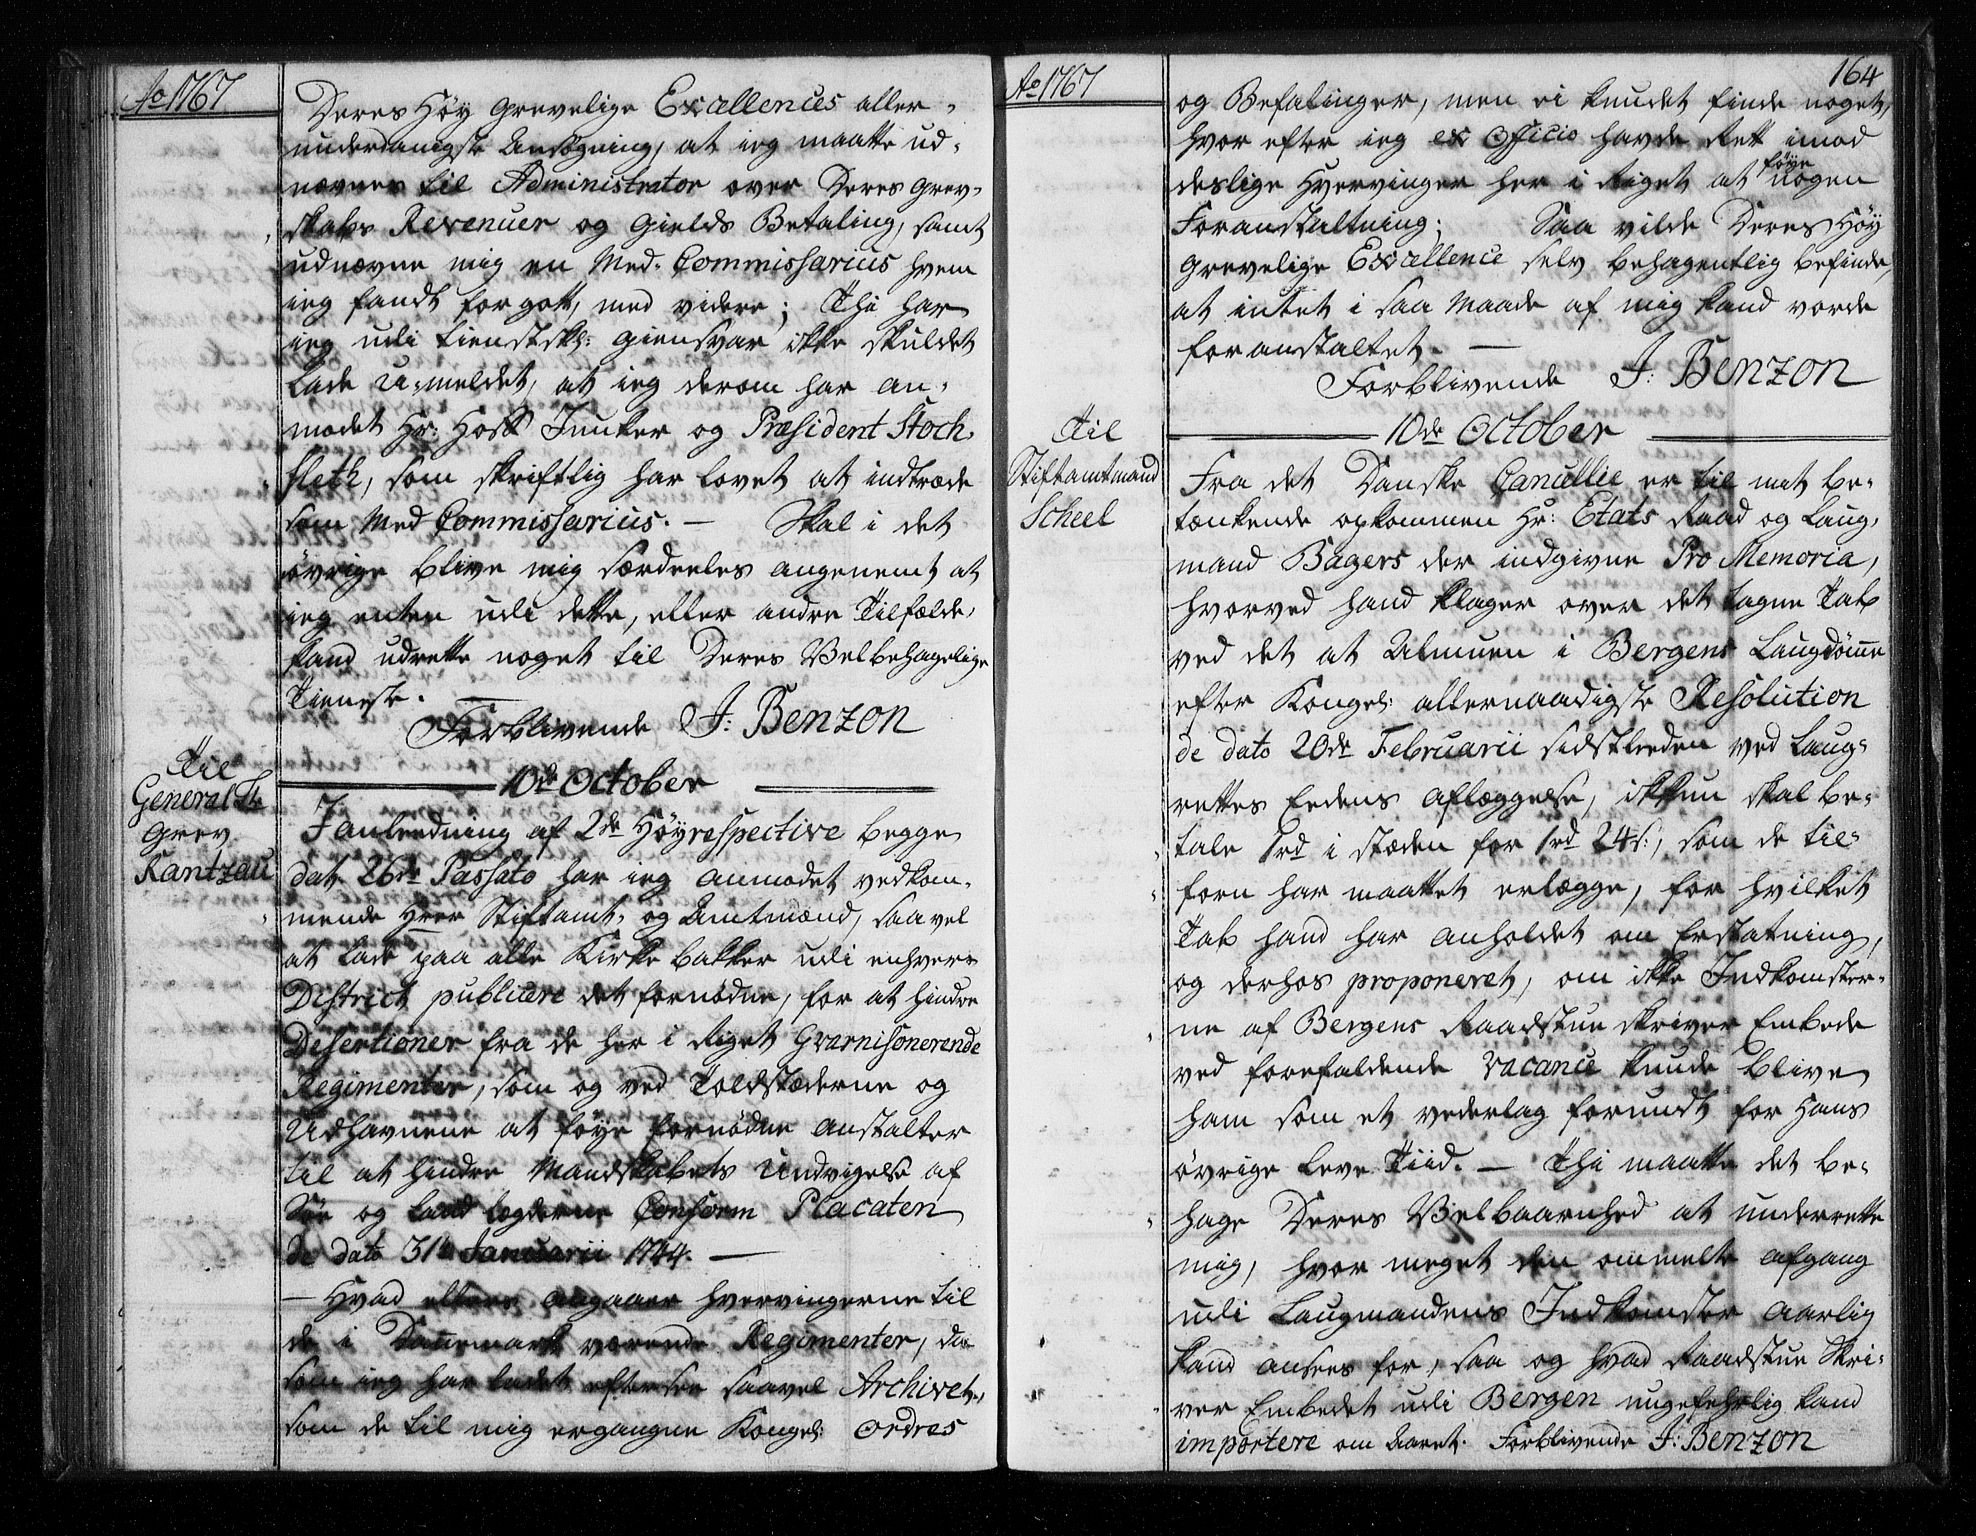 Ao 1767
Deres Høy Grevelige Excellences aller-
underdanigste Ansøgning, at ieg maatte ud-
nævnes til Administrator over Deres Grev-
skabs Revenuer og Gields Betaling, samt
udnævne mig en Med-Commissarius hvem
ieg fandt for gott, med videre; Thi har
ieg udi tienstskl: giensvar ikke skuldet
lade u-meldet, at ieg derom har an-
modet Hr: Hoff Junker og Præsident Stoch-
fleth, som skriftlig har lovet at indtræde
som Med Commissarius. — Skal i det
øvrige blive mig særdeeles angenemt at
ieg enten udi dette, eller andre Tilfælde,
kand udrette noget til Deres Velbehagelige
Tieneste. —
Forblivende J: Benzon
Til
General Lt.
Grev
Rantzau
10de October
I anleedning af 2de Høyrespective begge
dat. 26de Passato har ieg anmodet vedkom-
mende Hrer Stiftamt- og Amtmænd, saavel
at lade paa alle Kirke bakker udi enhvers
District publicere det fornødne, for at hindre
Desertioner fra de her i Riget Gvarnisonerende
Regimenter, som og ved Toldstæderne og
Udhavnene at føye fornødne anstalter
til at hindre Mandskabets Undvigelse af
Søe og Land Lægderne Conform Placaten
de dato 31te Januarii 1744. —
— Hvad ellers angaaer Hvervingerne til
de i Dannemark værende Regimenter, da
som ieg har ladet eftersee saavel Archivet,
som de til mig ergangne Kongel: Ordres
Ao 1767
164
og Befalinger, men ei kundet finde noget,
hvor efter ieg ex Officio havde Ret imod
deslige Hvervinger her i Riget at føye nogen
Foranstaltning; Saa vilde Deres Høy
Grevelige Excellence selv behagentlig befinde,
at intet i saa Maade af mig kand vorde
foranstaltet. —
Forblivende J: Benzon
Til
Stiftamtmand
Scheel
10de October
Fra det Danske Cancellie er til mit be-
tænkende opkommen Hr: Etats Raad og Laug-
mand Bagers der indgivne Pro Memoria,
hvorved hand klager over det tagne Tab
ved det at Almuen i Bergens Laugdømme
efter Kongel: allernaadigste Resolution
de dato 20de Februarii sidstleeden ved Laug-
rettes Eedens aflæggelse, ikkun skal be-
tale 1rd i stæden for 1rd 24s:, som de til-
forn har maattet erlægge, for hvilket
Tab hand har anholdet om Erstatning,
og derhos proponeret, om ikke Indkomster-
ne af Bergens Raadstue skriver Embede
ved forefaldende vacance kunde blive
ham som et vederlag forundt for Hans
øvrige Leve Tiid. — Thi maatte det be-
hage Deres Velbaarnhed at underrette
mig, hvor meget den ommelte afgang
udi Laugmandens Indkomster aarlig
kand ansees for, saa og hvad Raadstue Skri-
ver Embedet udi Bergen ungefehrlig kand
importere om Aaret. Forblivende J: Benzon